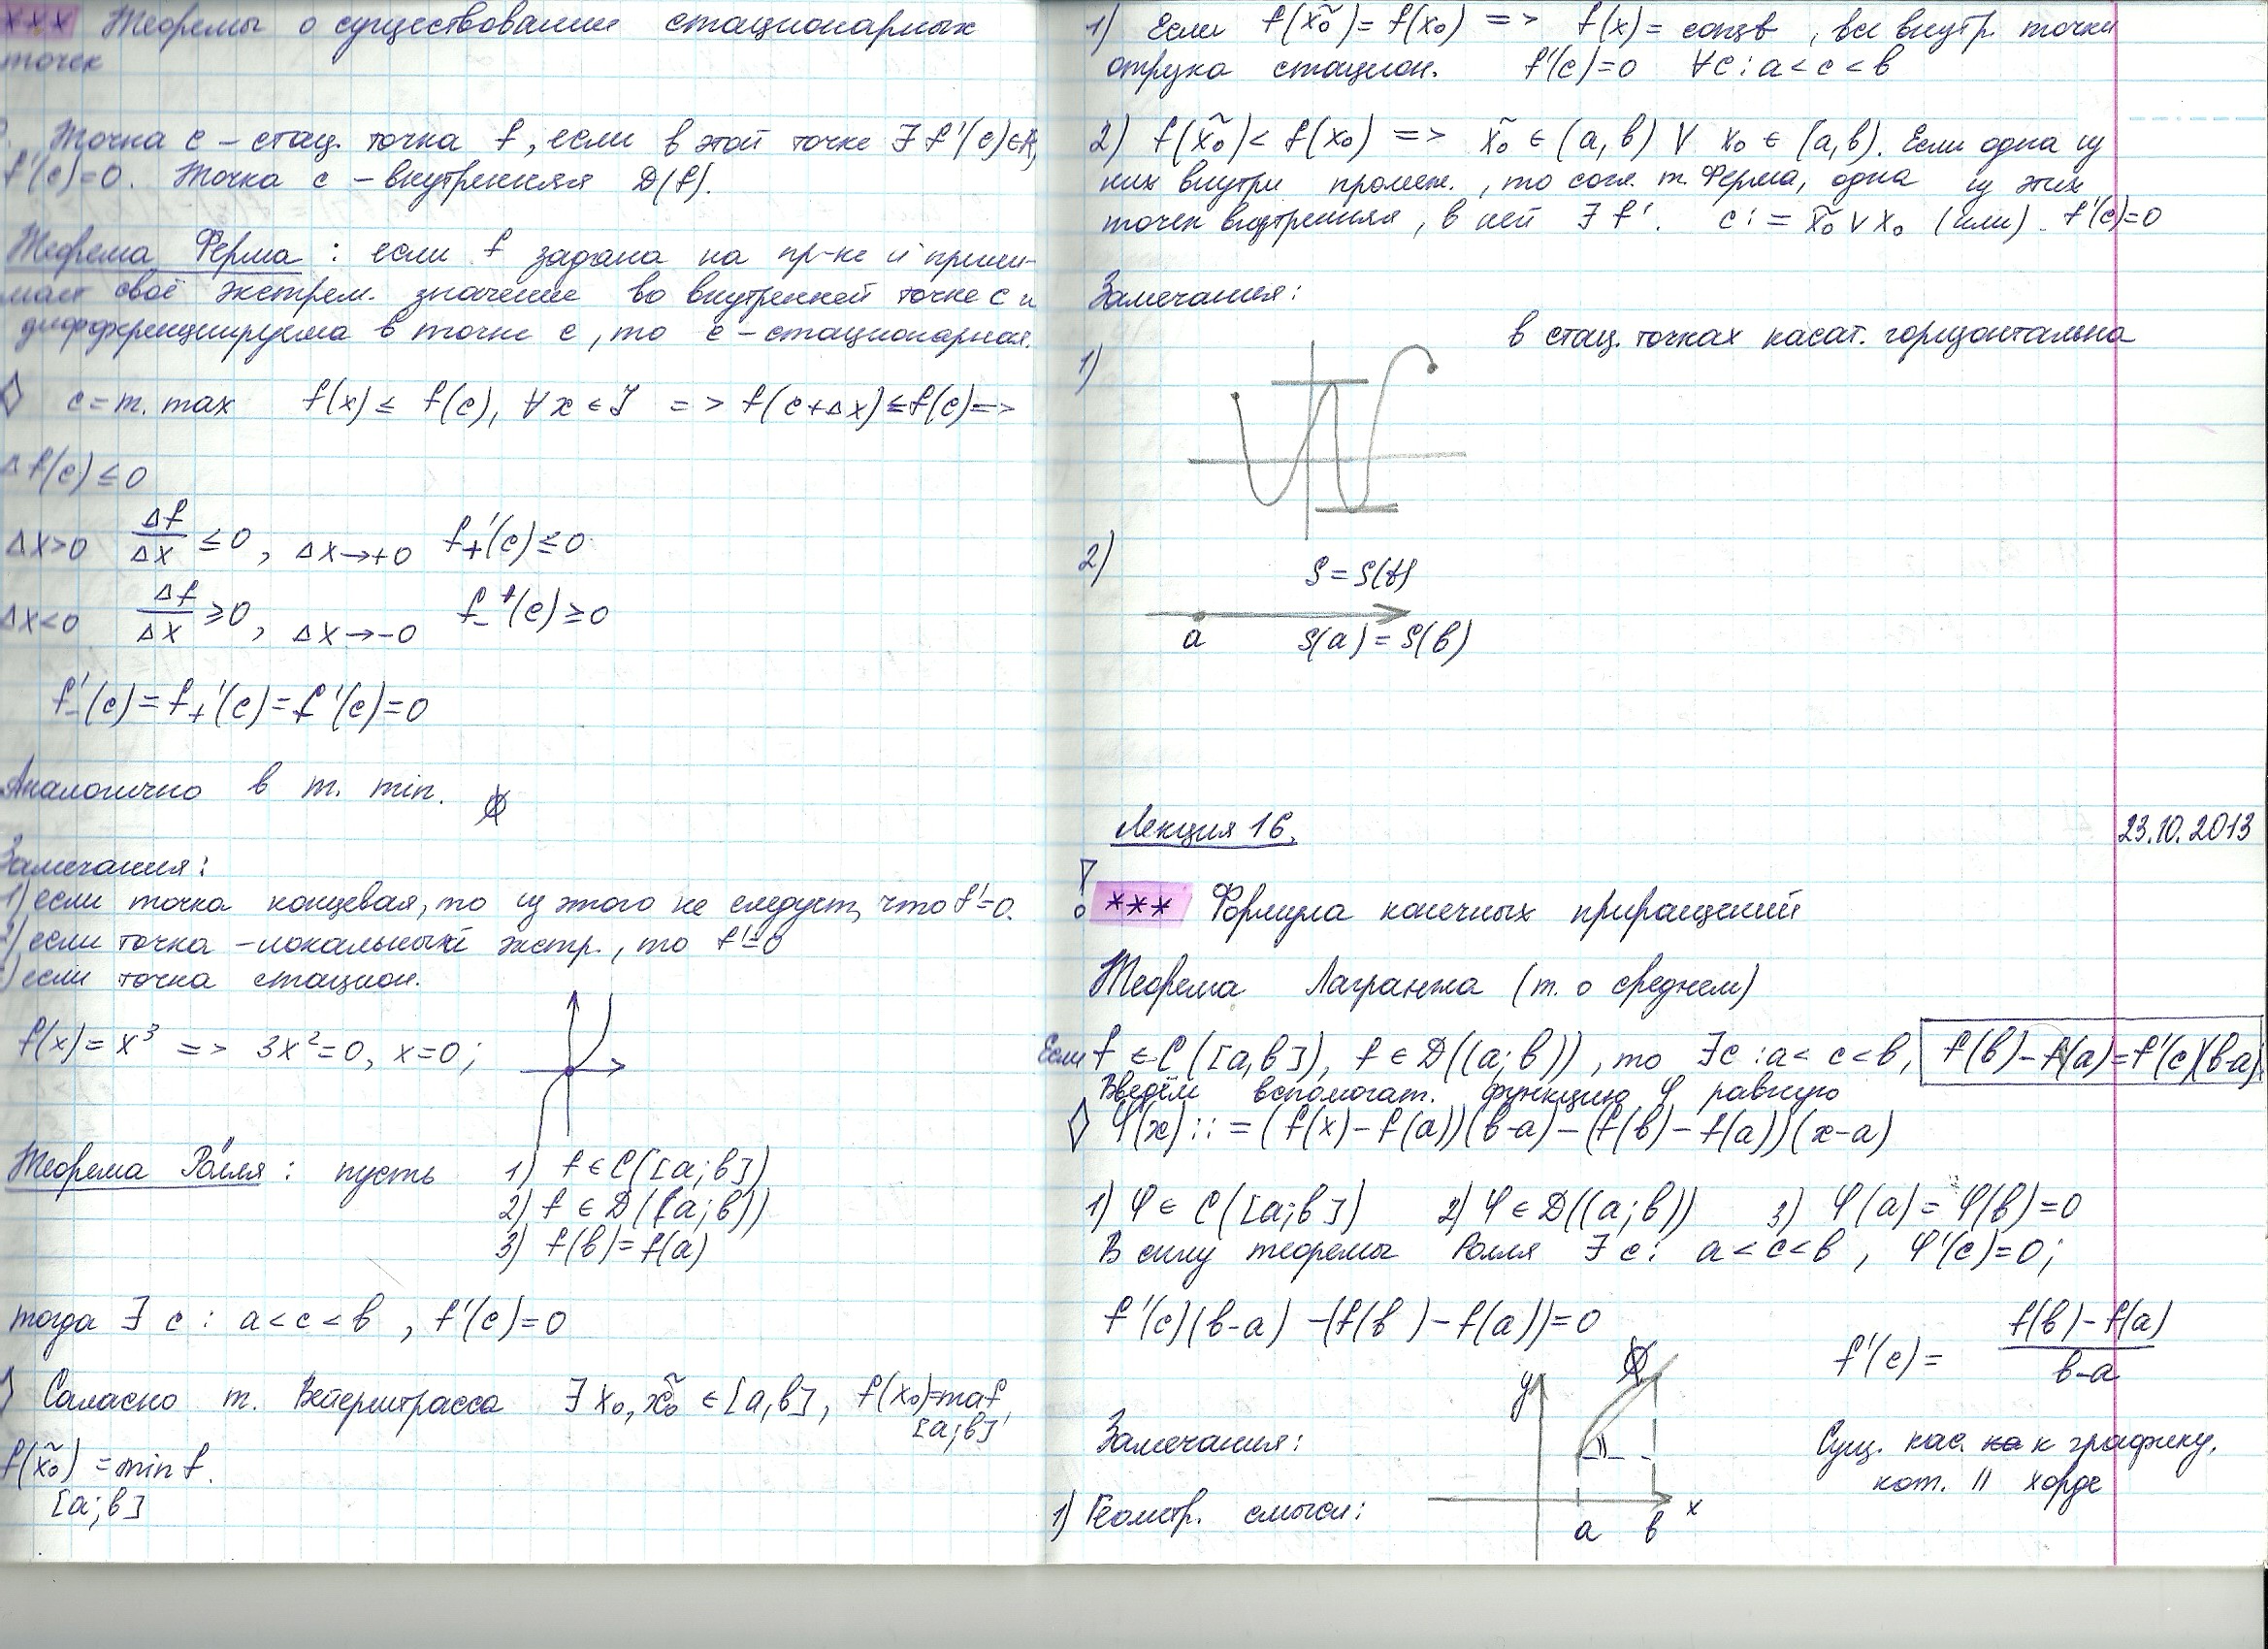 *** Теоремы о существовании стационарных
точек
Точка c – стац. точка f, если в этой точке ∃ f'(c)∈R,
f'(c)=0. Точка c – внутренняя D(f).
Теорема Ферма: если f задана на пр-ке и прини-
мает своё экстрем. значение во внутренней точке c и
дифференцируема в точке c, то c – стационарная.
c = т. max f(x) ≤ f(c), ∀x∈J => f(c+Δx) ≤ f(c) =>
Δf(c) ≤ 0
Δx>0 Δf/Δx ≤ 0, Δx→+0 f₊'(c) ≤ 0
Δx<0 Δf/Δx ≥ 0, Δx→-0 f₋'(c) ≥ 0
f₋'(c) = f₊'(c) = f'(c) = 0
Аналогично в т. min.
Замечания:
1) если точка концевая, то из этого не следует, что f'=0.
2) если точка – локальный экстр., то f'=0
3) если точка стацион.
f(x) = x³ => 3x²=0, x=0;
Теорема Ролля: пусть 1) f∈C([a;b])
2) f∈D((a;b))
3) f(b)=f(a)
тогда ∃ c: a<c<b, f'(c)=0
Саласно т. Вейерштрасса ∃ x₀, x̃₀ ∈ [a,b], f(x₀)=maf,
[a;b]
f(x̃₀) = min f.
[a;b]
1) Если f(x̃₀) = f(x₀) => f(x) = const, все внутр. точки
отрузка стацион. f'(c)=0 ∀c: a<c<b
2) f(x̃₀) < f(x₀) => x̃₀∈(a,b) ∨ x₀∈(a,b). Если одна из
них внутри промеж., то согл. т. Ферма, одна из этих
точек внутренняя, в ней ∃ f'. c := x̃₀ ∨ x₀ (или). f'(c)=0
Замечания:
в стац. точках касат. горизонтальна
1)
2)
S = S(t)
a S(a) = S(b)
Лекция 16. 23.10.2013
! *** Формула конечных приращений
Теорема Лагранжа (т. о среднем)
Если f∈C([a,b]), f∈D((a;b)), то ∃c: a<c<b, f(b)-f(a)=f'(c)(b-a).
Введём вспомогат. функцию φ равную
φ(x) ::= (f(x)-f(a))(b-a)-(f(b)-f(a))(x-a)
1) φ∈C([a;b]) 2) φ∈D((a;b)) 3) φ(a)=φ(b)=0
В силу теоремы Ролля ∃ c: a<c<b, φ'(c)=0;
f'(c)(b-a) -(f(b)-f(a))=0
f'(c) = f(b)-f(a)/b-a
Замечания:
y
Сущ. кас. к графику,
кот. || хорде
1) Геометр. смысл:
a b x